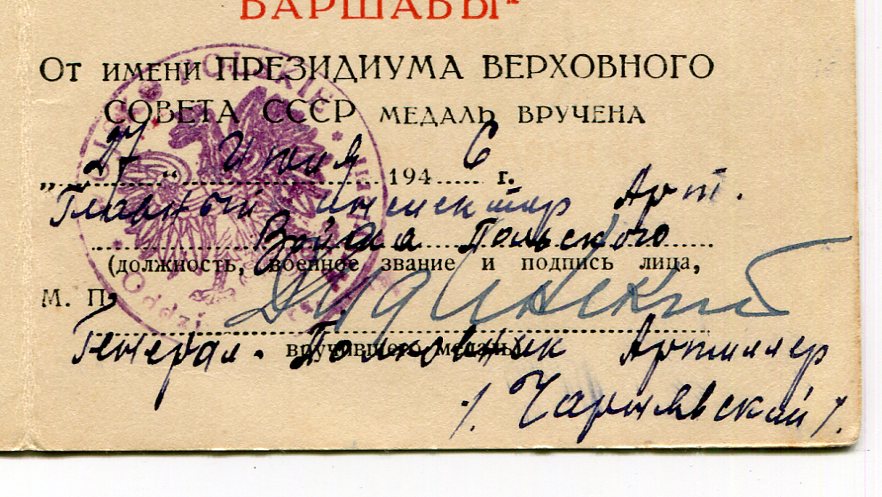 ВАРШАВЫ"
От имени ПРЕЗИДИУМА ВЕРХОВНОГО
СОВЕТА СССР медаль вручена
„27“ 1946 г.
Главный инспектор Арт.
Войска Польского
(должность, военное звание и подпись лица,
М. П.
вручившего медаль)
Генерал-Полковник Артиллер
/ Чарнявский /.
POLSKIE